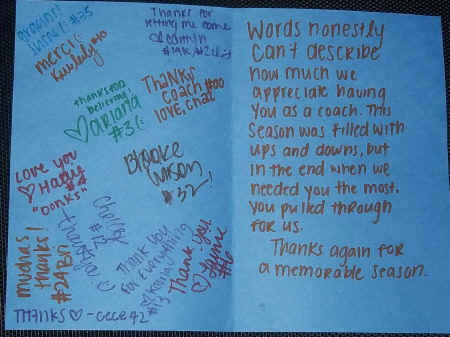 #35
merci!
Thanks for
letting me come
thanks for
believing!
♡ariana
#3
Thanks
coach #00
LOVE, Chat
Love you
♡Hattie
#4
"Donks"
Brooke
#32!
Chelsey
#12
thank ya!
Thank you
for everything
#13
Thank you!
♡
muchas
thanks!
#24
THANKS♡-cece 42
Words honestly
can't describe
how much we
appreciate having
you as a coach. This
season was filled with
ups and downs, but
in the end when we
needed you the most.
you pulled through
for us.
Thanks again for
a memorable season.